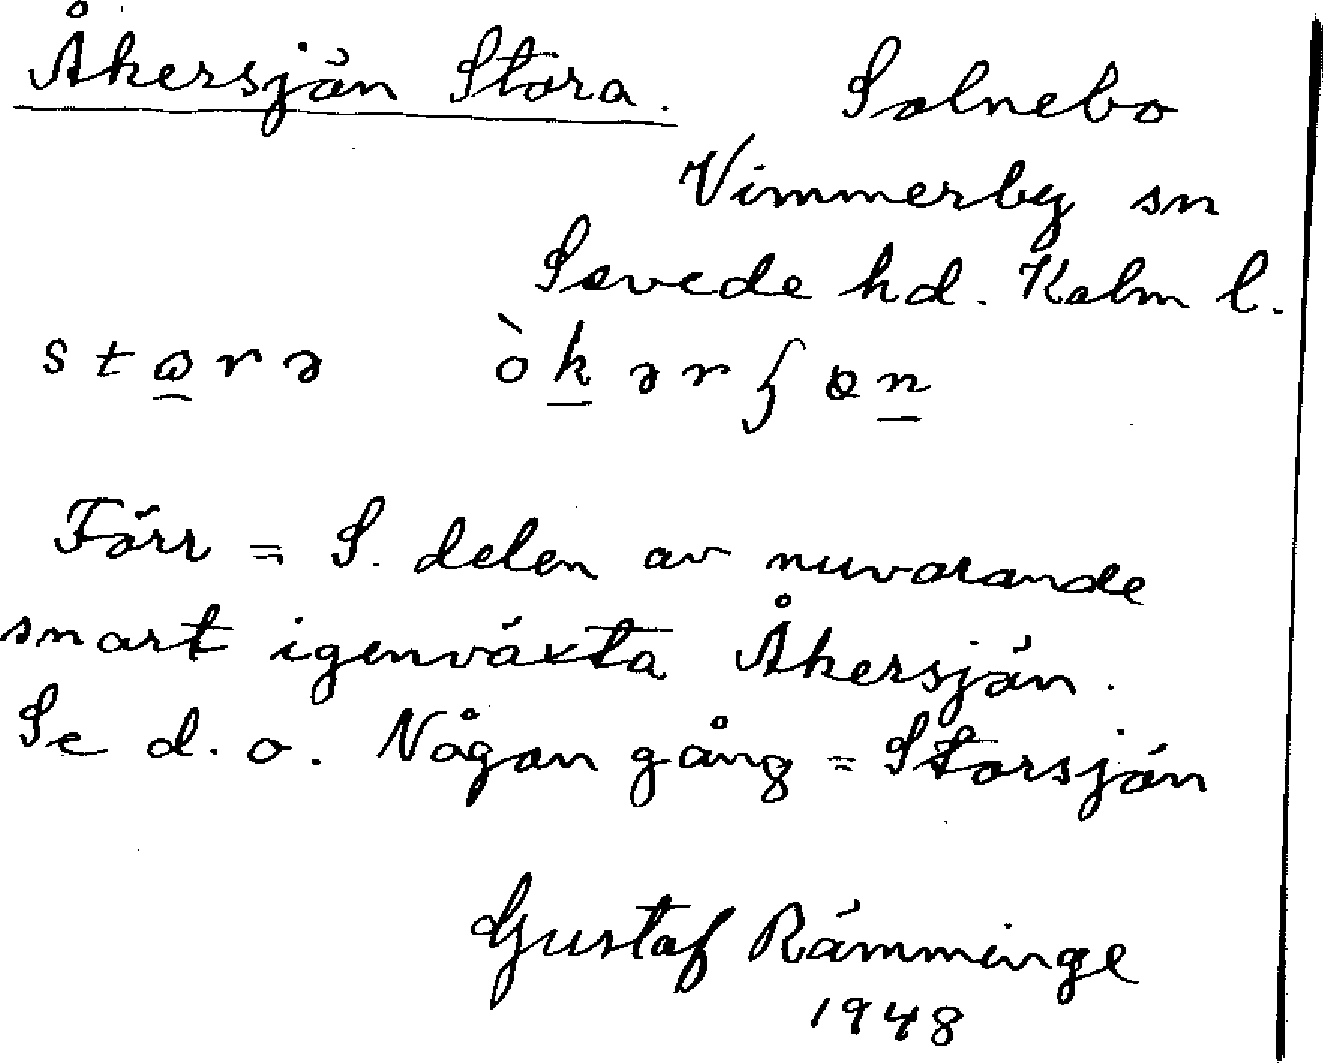 Åkersjön Stora. Solnebo
Vimmerby sn
Sevede hd. Kalm l.
stɷrə òkərʃøn
Förr = S. delen av nuvarande
snart igenväxta Åkersjön.
Se d. o. Någon gång = Storsjön
Gustaf Rämminge
1948